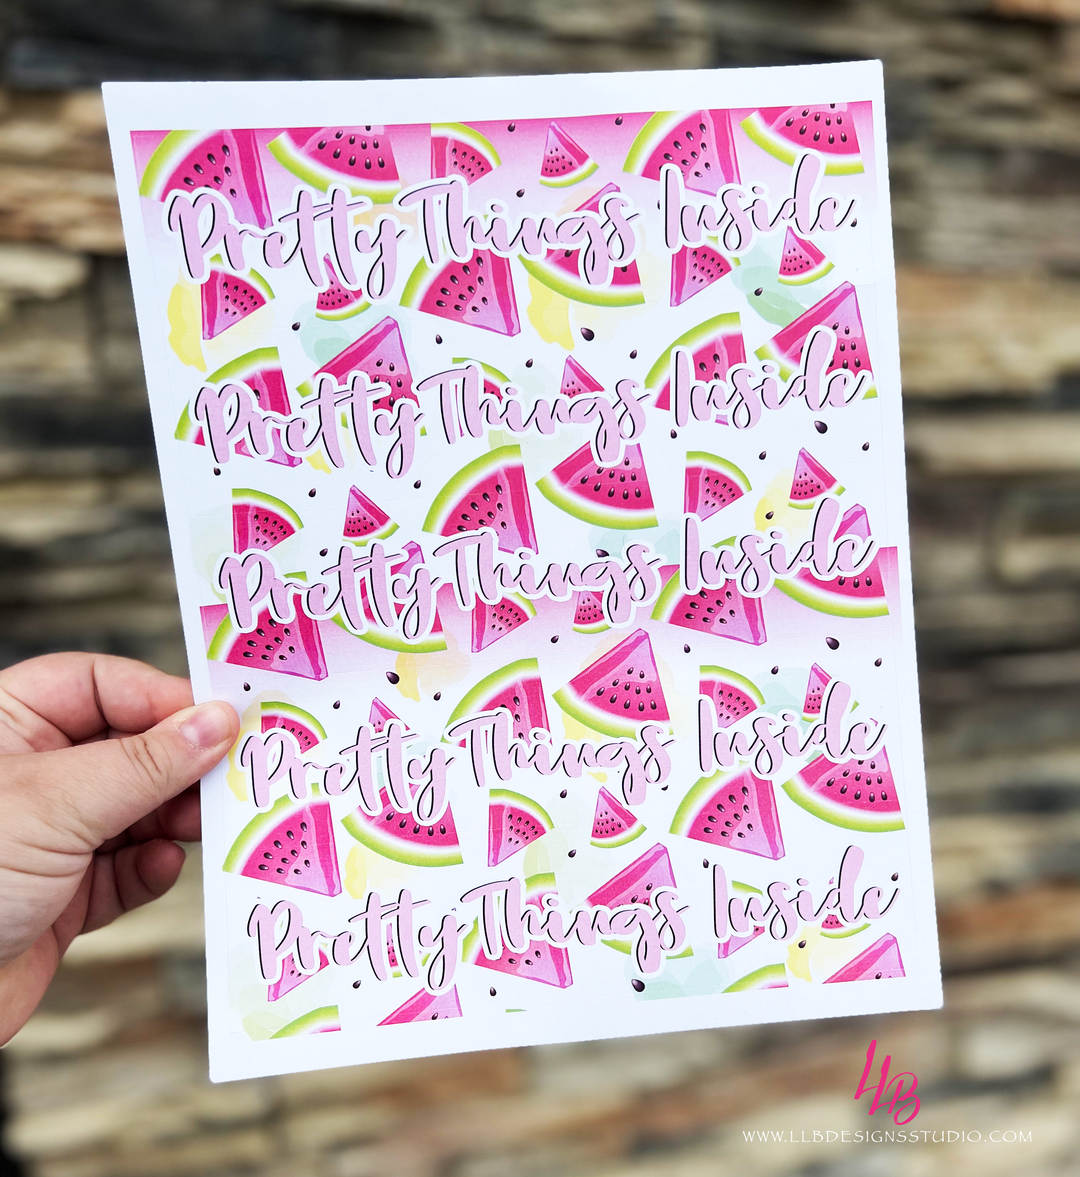 Pretty Things Inside
Pretty Things Inside
Pretty Things Inside
Pretty Things Inside
Pretty Things Inside
LLB
WWW.LLBDESIGNSSTUDIO.COM